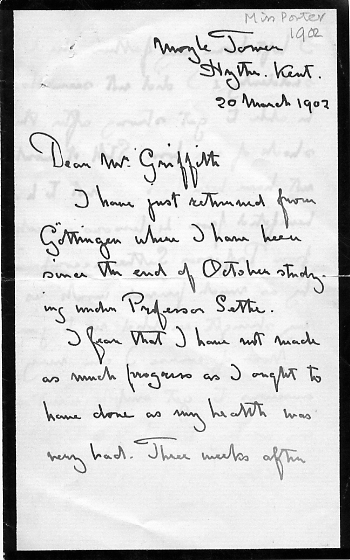 Miss Porter
1902
Moyle Tower
Hythe. Kent.
20 March 1902
Dear Mr Griffith
I have just returned from
Göttingen where I have been
since the end of October study-
ing under Professor Sethe.
I fear that I have not made
as much progress as I ought to
have done as my health was
very bad. Three weeks after